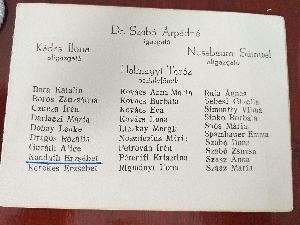 Dr. Szabó Árpádné
igazgató
Kádas Ilona
aligazgató
Nussbaum Sámuel
aligazgató
Holnapyi Teréz
osztályfőnök
Bara Katalin
Boros Zsuzsánna
Csenza Irén
Darlaczi Mária
Dobay Lenke
Dragos Rozália
Guráth Alice
Kanduth Erzsébet
Kerekes Erzsébet
Kovács Anna Mária
Kovács Borbála
Kovács Éva
Kovács Ilona
Lészkay Margit
Mária
Petrován Irén
Péterffi Krisztina
Rigmányi Ilona
Rófa Ágnes
Sebesi Gizella
Simonffy Vilma
Simko Borbála
Soós Mária
Spanhauer Emma
Szabó Ilona
Szabó Zsuzsa
Szász Anna
Szász Mária